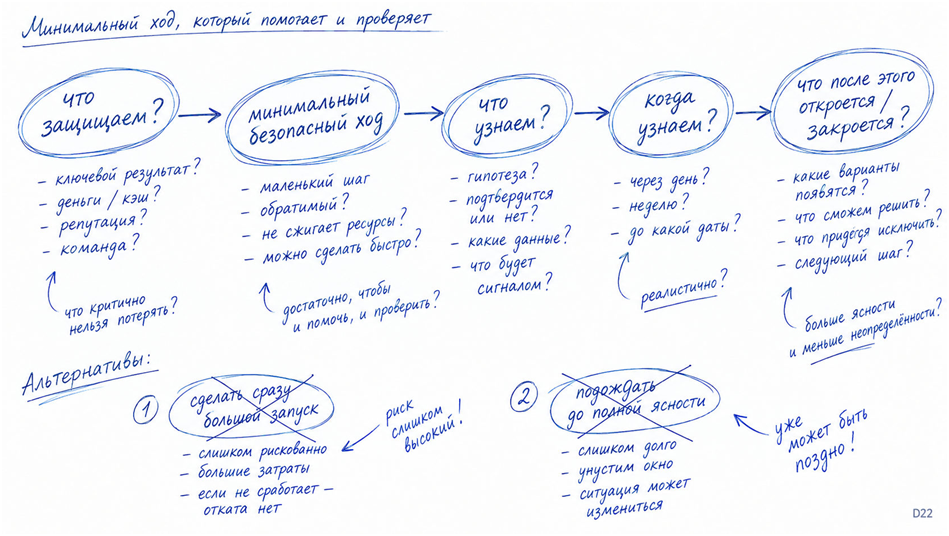 Минимальный ход, который помогает и проверяет
что
защищаем?
минимальный
безопасный ход
что
узнаем?
когда
узнаем?
что после этого
откроется /
закроется?
– ключевой результат?
– деньги / кэш?
– репутация?
– команда?
что критично
нельзя потерять?
– маленький шаг
– обратимый?
– не сжигает ресурсы?
– можно сделать быстро?
достаточно, чтобы
и помочь, и проверить?
– гипотеза?
– подтвердится
или нет?
– какие данные?
– что будет
сигналом?
– через день?
– неделю?
– до какой даты?
реалистично?
– какие варианты
появятся?
– что сможем решить?
– что придётся исключить?
– следующий шаг?
больше ясности
и меньше неопределённости?
Альтернативы:
1
сделать сразу
большой запуск
– слишком рискованно
– большие затраты
– если не сработает –
отката нет
риск
слишком
высокий!
2
подождать
до полной ясности
– слишком долго
– упустим окно
– ситуация может
измениться
уже
может быть
поздно!
D22